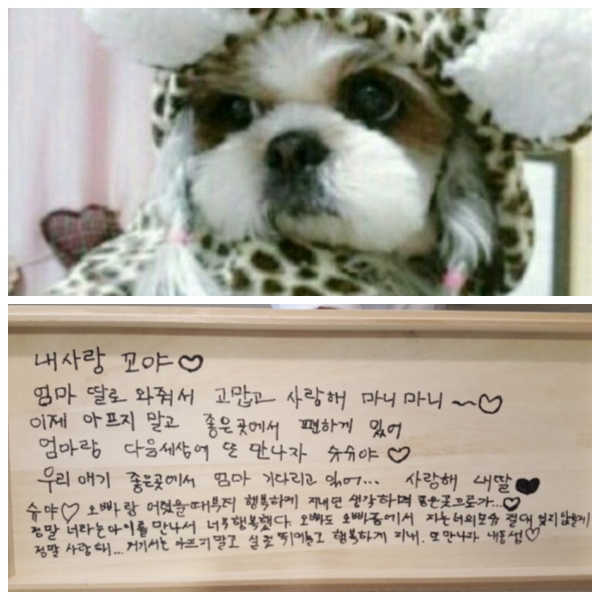 내사랑 꼬야♡
엄마 딸로 와줘서 고맙고 사랑해 마니마니~♡
이제 아프지 말고 좋은곳에서 편하게 있어
엄마랑 다음세상에 또 만나자 슈슈야♡
우리애기 좋은곳에서 엄마 기다리고 있어... 사랑해 내딸♥
슈야♡ 오빠랑 어렸을때부터 행복하게 지내던 생각하며 좋은곳으로가...♡
정말 너라는아이를 만나서 너무행복했다. 오빠도 오빠품에서 자는너의모습 절대 잊지않을게
정말 사랑해... 거기서는 아프지말고 실컷 뛰어놀고 행복하게 지내. 또만나자 내동생♡